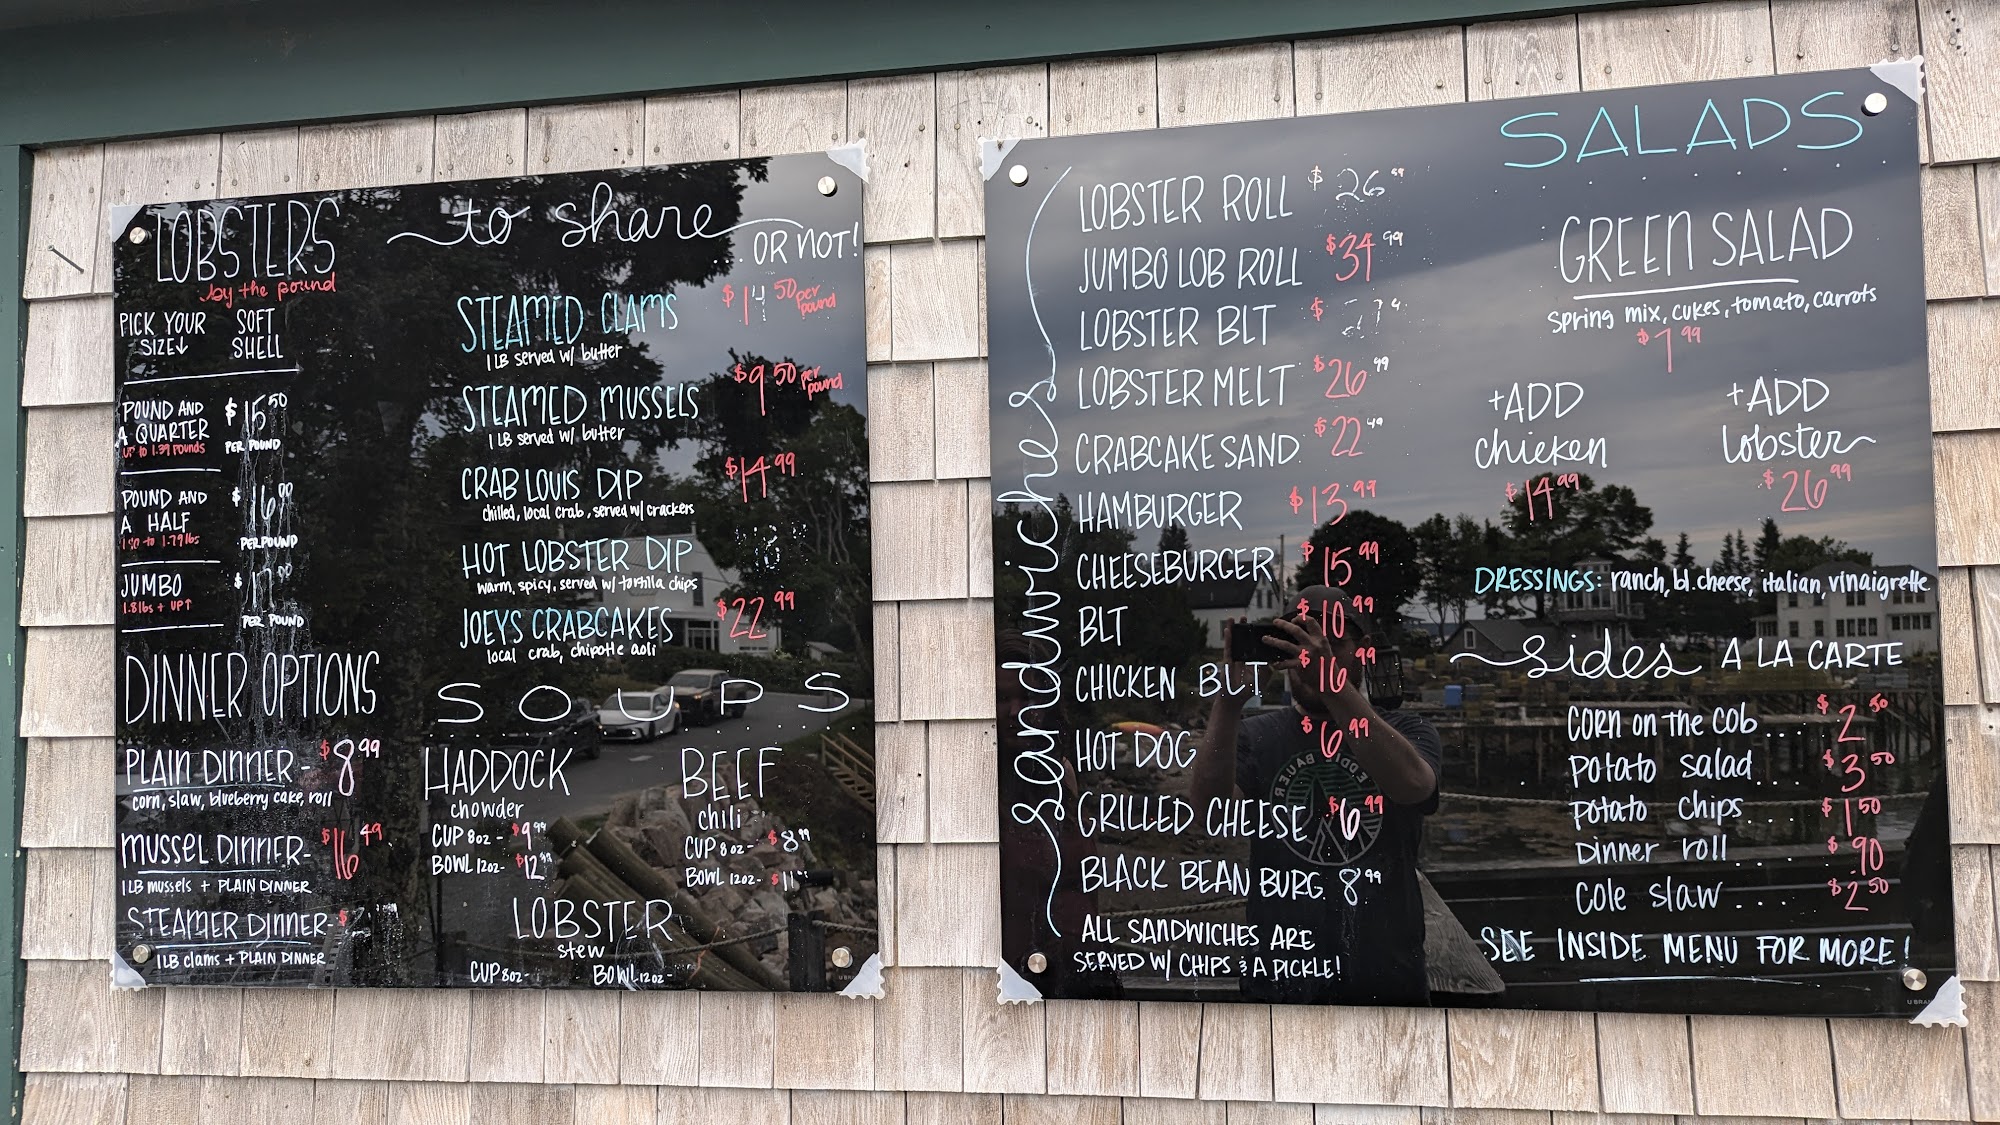 LOBSTERS
by the pound
PICK YOUR SIZE↓
SOFT SHELL
POUND AND A QUARTER
$15.50 PER POUND
up to 1.39 pounds
POUND AND A HALF
$16.00 PER POUND
to 1.79 lbs
JUMBO
PER POUND
1.8 lbs + UP↑
DINNER OPTIONS
PLAIN DINNER - $8.99
corn, slaw, blueberry cake, roll
MUSSEL DINNER - $16.49
1 LB mussels + PLAIN DINNER
STEAMER DINNER - $
1 LB clams + PLAIN DINNER
to share
....OR NOT!
STEAMED CLAMS $14.50 per pound
1 LB served w/ butter
STEAMED MUSSELS $9.50 per pound
1 LB served w/ butter
CRAB LOUIS DIP $14.99
chilled, local crab, served w/ crackers
HOT LOBSTER DIP
warm, spicy, served w/ tortilla chips
JOEYS CRABCAKES $22.99
local crab, chipotle aoli
SOUPS
HADDOCK
chowder
CUP 8oz - $9.99
BOWL 12oz - $12.99
BEEF
chili
CUP 8oz - $8.99
BOWL 12oz - $11
LOBSTER
stew
CUP 8oz - BOWL 12oz -
sandwiches
LOBSTER ROLL $26.99
JUMBO LOB ROLL $34.99
LOBSTER BLT $
LOBSTER MELT $26.99
CRABCAKE SAND. $22.49
HAMBURGER $13.99
CHEESEBURGER $15.99
BLT $10.99
CHICKEN BLT $16.99
HOT DOG $6.99
GRILLED CHEESE $6.99
BLACK BEAN BURG. 8.99
ALL SANDWICHES ARE
SERVED W/ CHIPS & A PICKLE!
SALADS
GREEN SALAD
spring mix, cukes, tomato, carrots
$7.99
+ADD chicken
$14.99
+ADD lobster
$26.99
DRESSINGS: ranch, bl. cheese, italian, vinaigrette
sides A LA CARTE
CORN on the COB ... $2.50
potato salad... $3.50
potato chips... $1.50
Dinner roll.... $.90
Cole slaw.... $2.50
SEE INSIDE MENU FOR MORE!
EDDIE BAUER